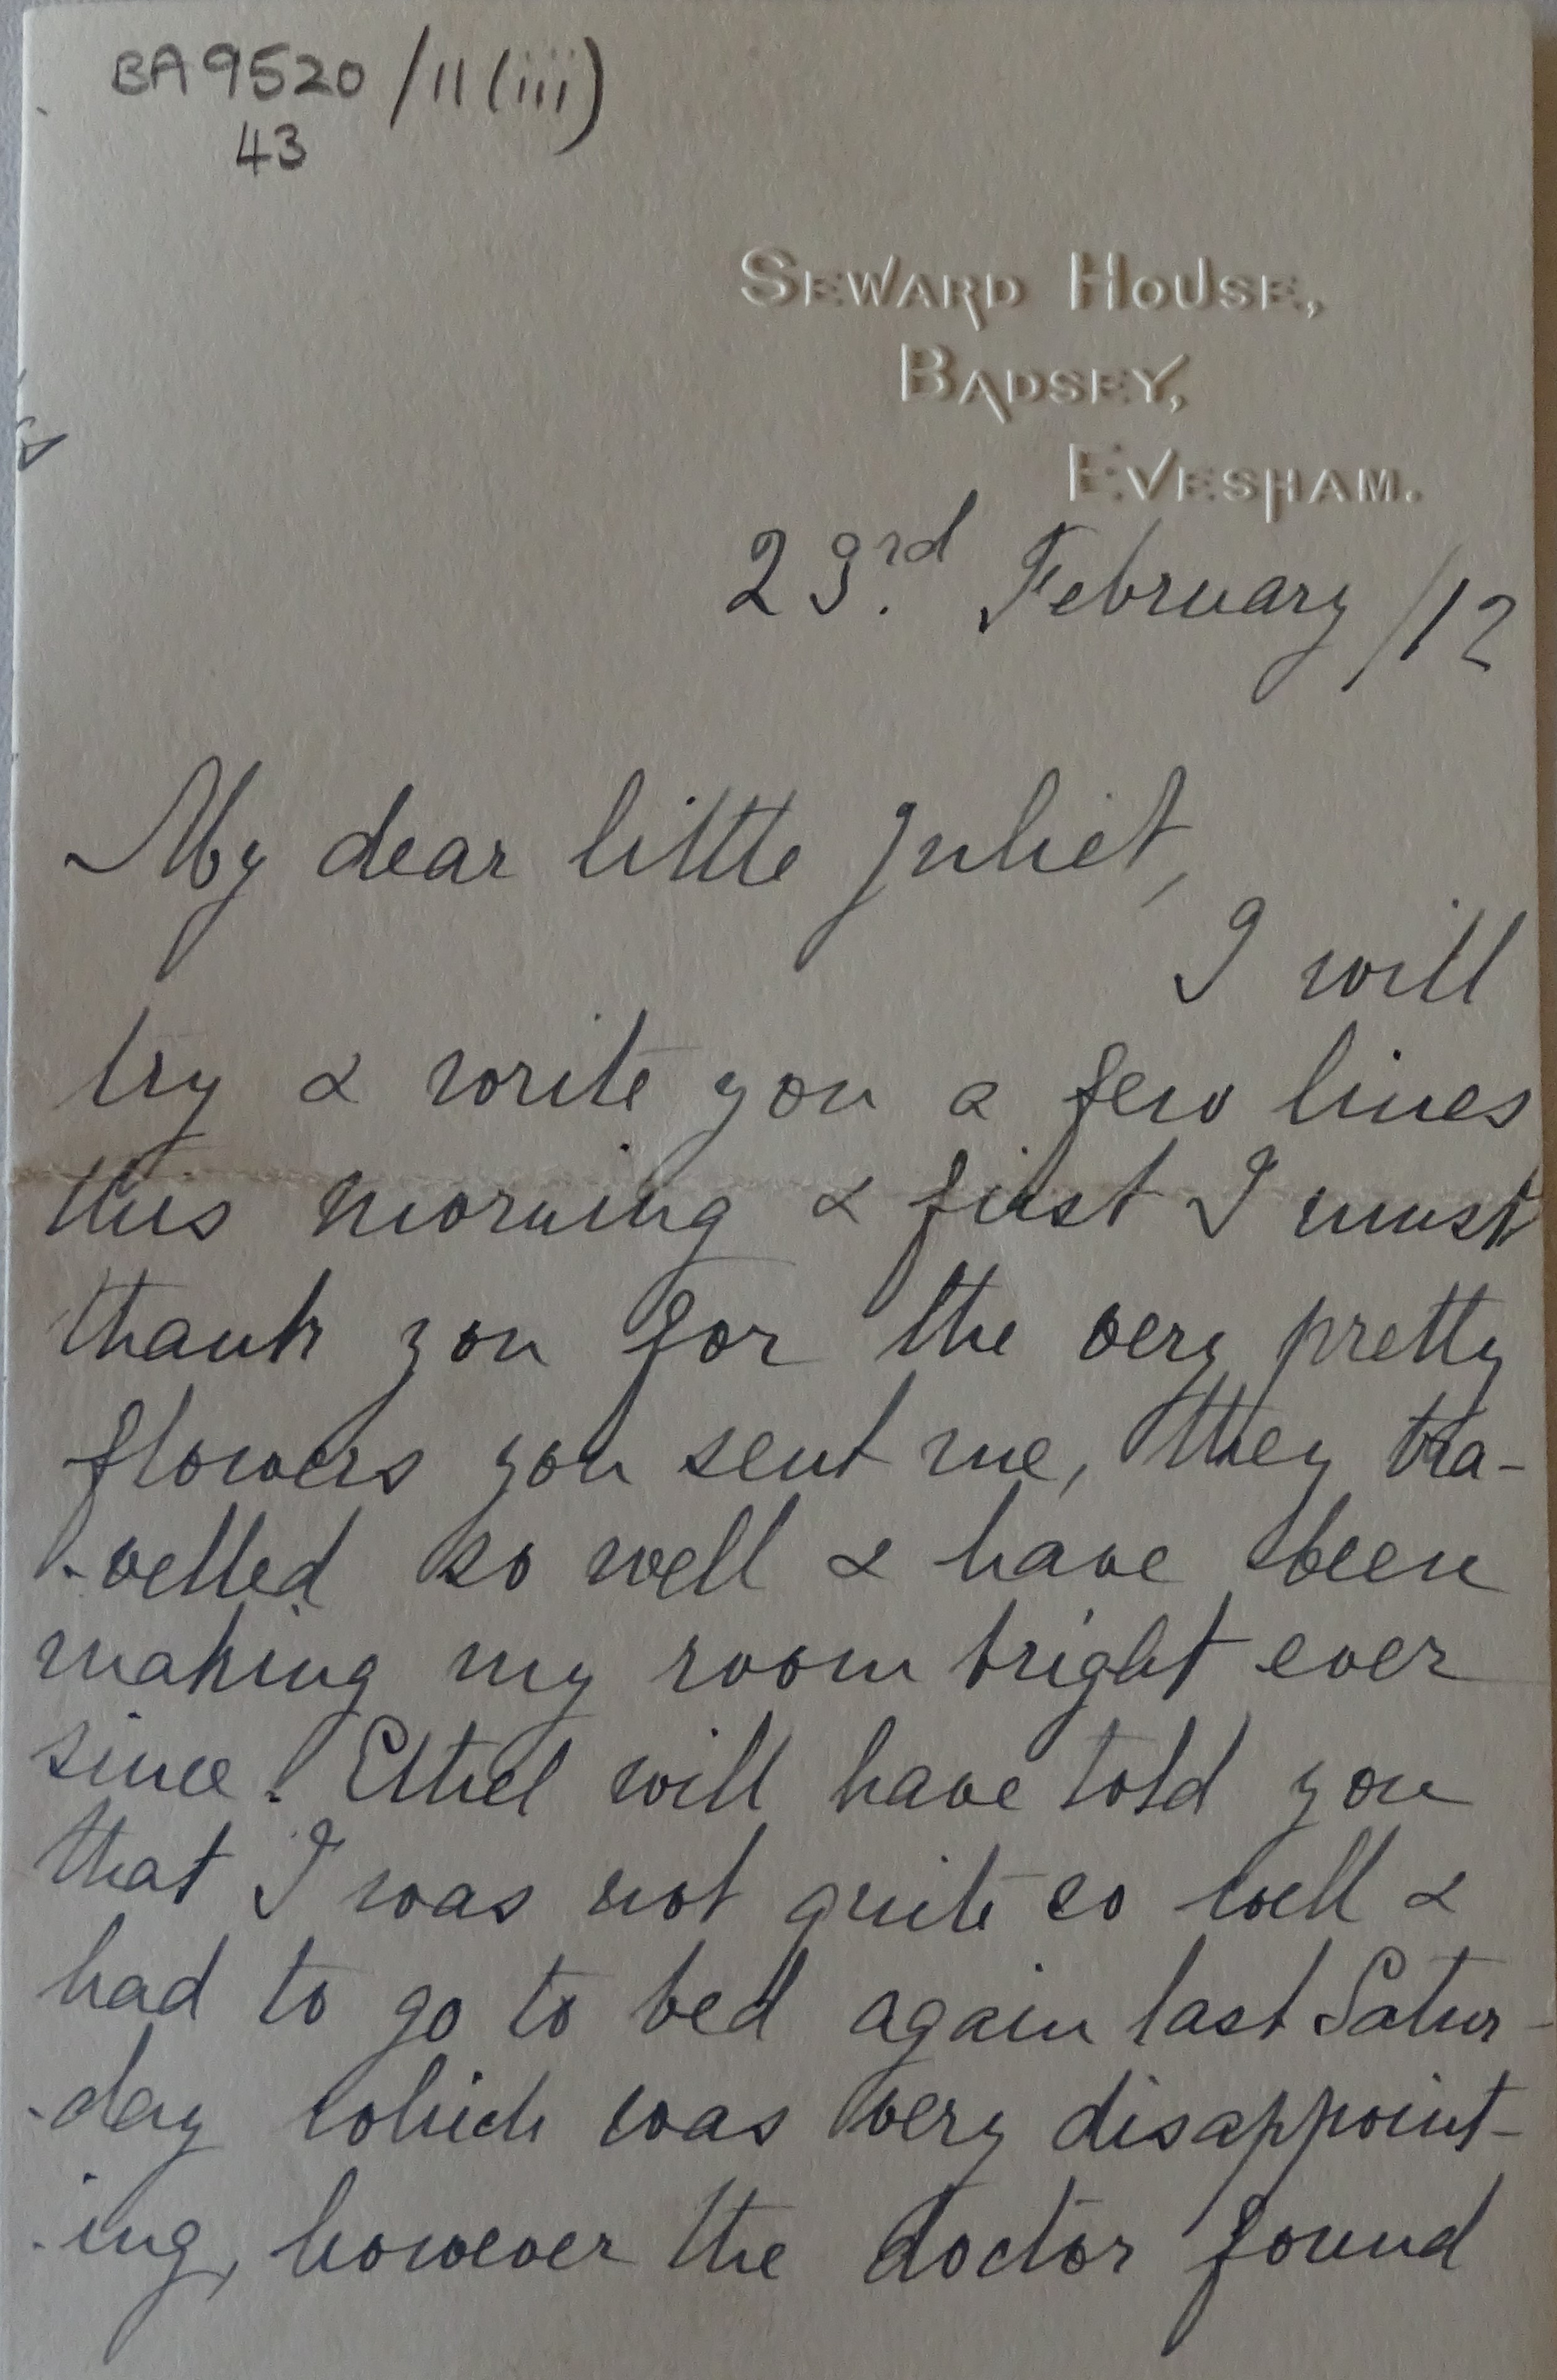 BA9520/11(iii)
43
SEWARD HOUSE,
BADSEY,
EVESHAM.
23rd. February /12
My dear little Juliet,
I will
try & write you a few lines
this morning & first I must
thank you for the very pretty
flowers you sent me, they tra-
-velled so well & have been
making my room bright ever
since! Ethel will have told you
that I was not quite so well &
had to go to bed again last Satur-
-day which was very disappoint-
-ing, however the doctor found